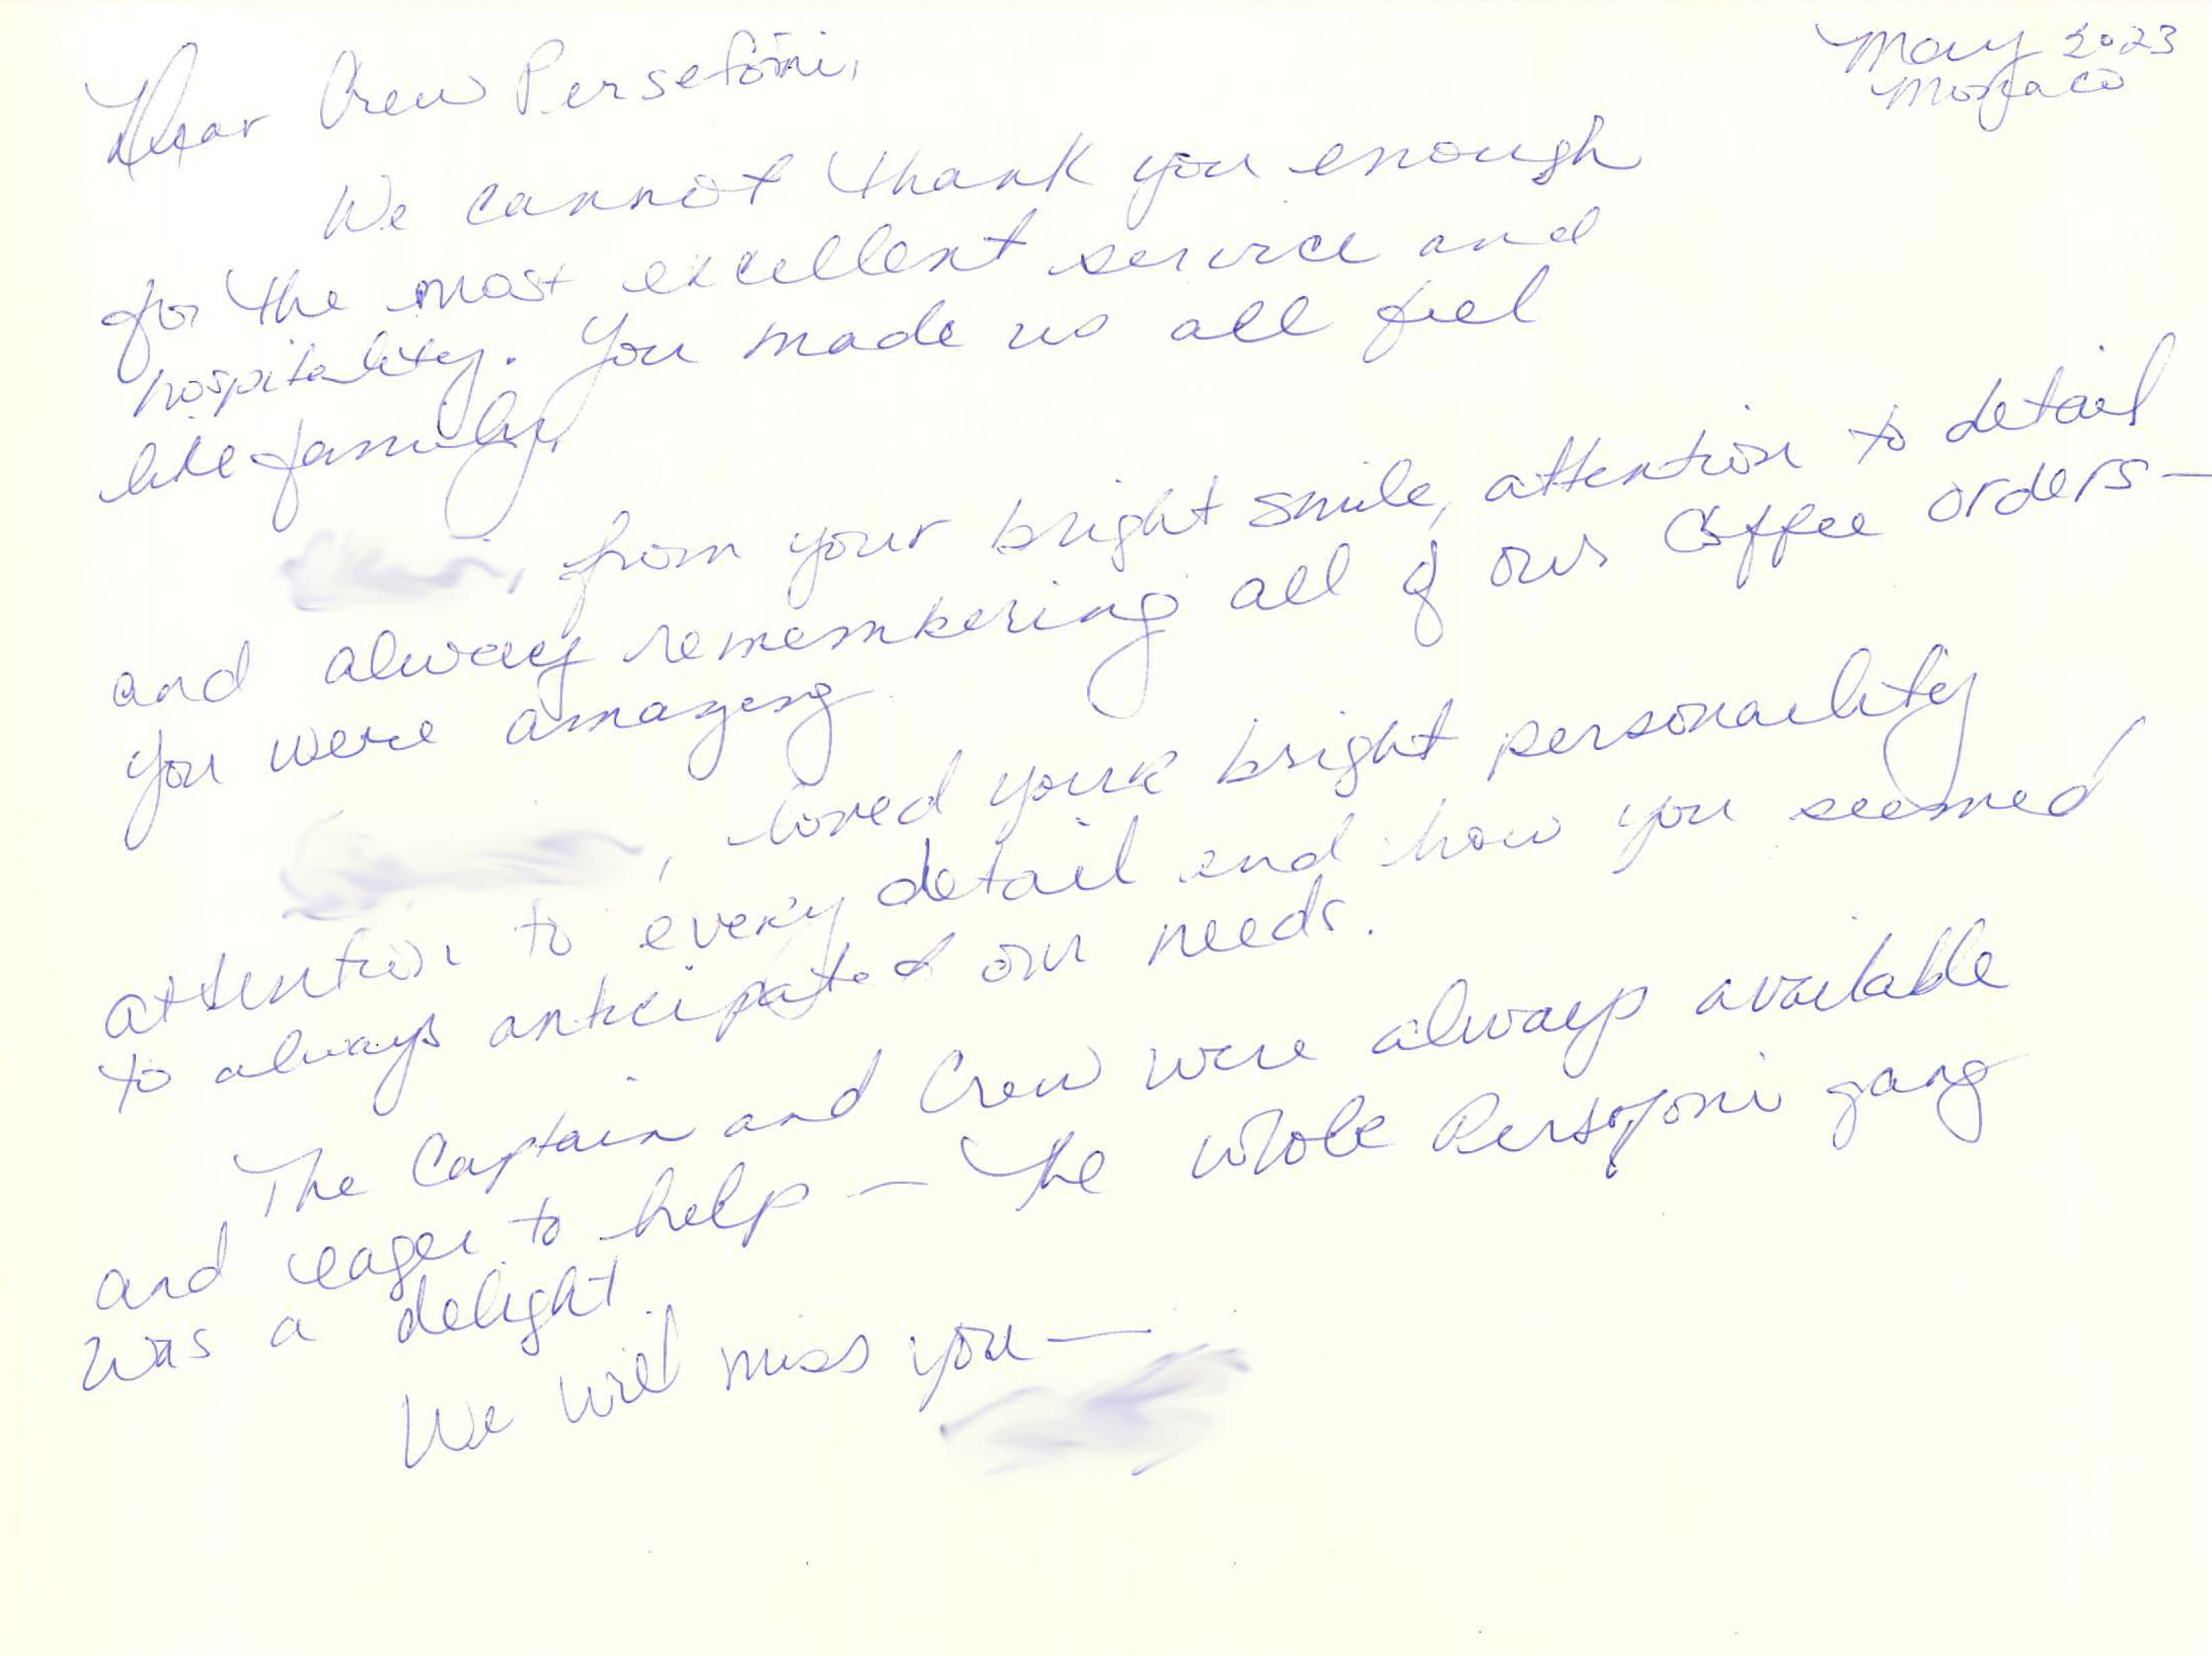 May 2023
Monaco
Dear Crew Persefoni,
We cannot thank you enough
for the most excellent service and
hospitality. You made us all feel
like family.
, from your bright smile, attention to detail
and always remembering all of our coffee orders—
you were amazing
, loved your bright personality
attention to every detail and how you seemed
to always anticipated our needs.
The Captain and Crew were always available
and eager to help — The whole Persefoni gang
was a delight.
We will miss you—